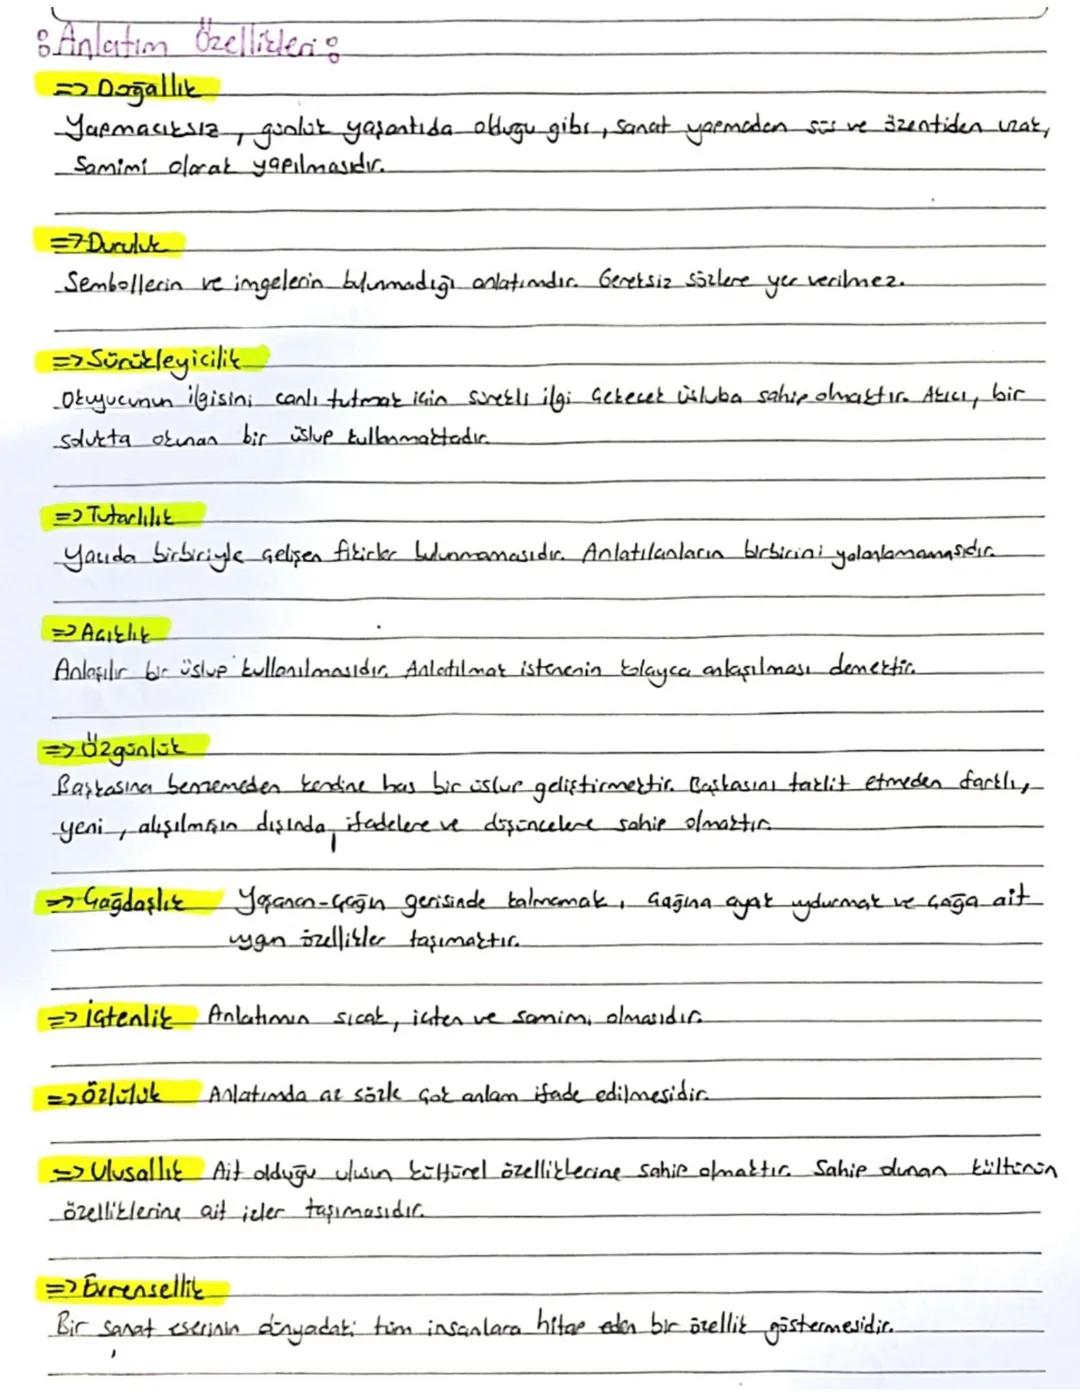 Anlatım Özellikleri
=> Doğallık
Yapmacıksız, günlük yaşantıda olduğu gibi, sanat yapmadan süs ve özentiden uzak,
Samimi olarak yapılmasıdır.
=> Duruluk
Sembollerin ve imgelerin bulunmadığı anlatımdır. Gereksiz sözlere yer verilmez.
=> Sürükleyicilik
Okuyucunun ilgisini canlı tutmak için sürekli ilgi çekecek üsluba sahip olmaktır. Akıcı, bir
solukta okunan bir üslup kullanmaktadır.
=> Tutarlılık
Yazıda birbiriyle çelişen fikirler bulunmamasıdır. Anlatılanların birbirini yalanlamamasıdır.
=> Açıklık
Anlaşılır bir üslup kullanılmasıdır. Anlatılmak istenenin kolayca anlaşılması demektir.
=> Özgünlük
Başkasına benzemeden kendine has bir üslup geliştirmektir. Başkasını taklit etmeden farklı,
yeni, alışılmışın dışında, ifadelere ve düşüncelere sahip olmaktır.
=> Çağdaşlık Yaşanan çağın gerisinde kalmamak, çağına ayak uydurmak ve çağa ait
uygun özellikler taşımaktır.
=> İçtenlik Anlatımın sıcak, içten ve samimi olmasıdır.
=> Özlülük Anlatımda az sözle çok anlam ifade edilmesidir.
=> Ulusallık Ait olduğu ulusun kültürel özelliklerine sahip olmaktır. Sahip olunan kültürün
özelliklerine ait izler taşımasıdır.
=> Evrensellik
Bir sanat eserinin dünyadaki tüm insanlara hitap eden bir özellik göstermesidir.